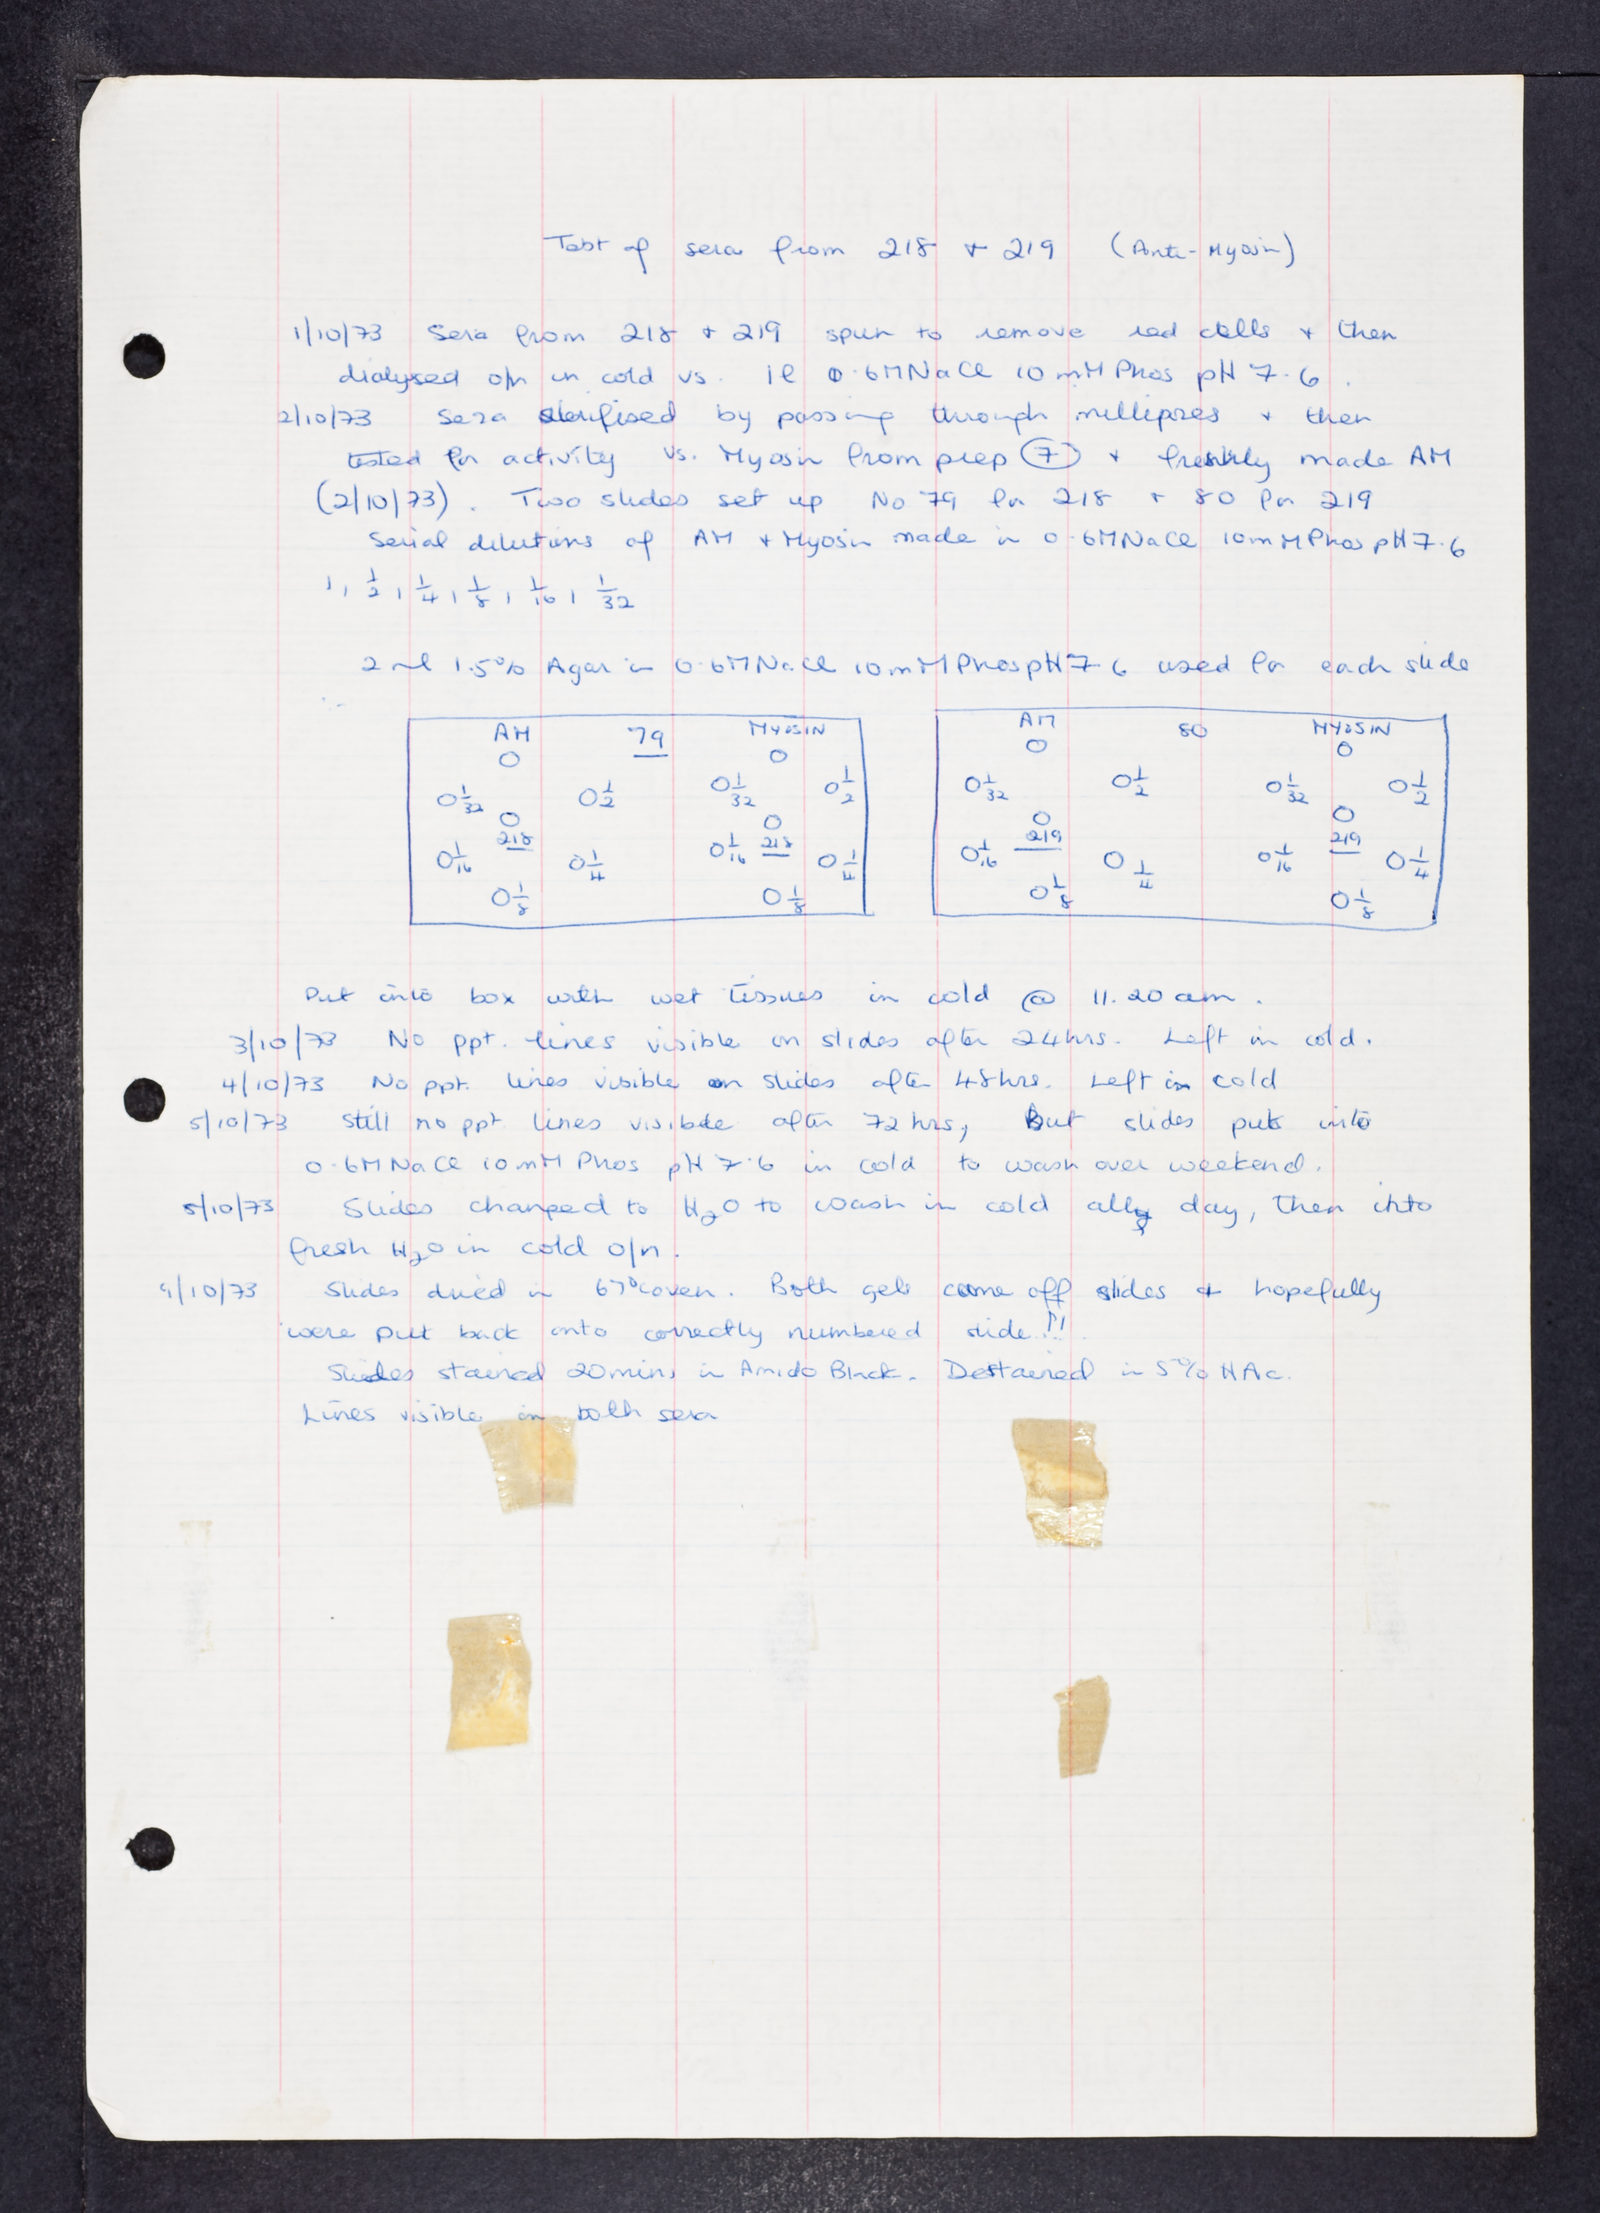 Test of sera from 218 + 219 (Anti-Myosin)
1/10/73 Sera from 218 + 219 spun to remove red cells + then
dialysed o/n in cold vs. 1l 0.6M NaCl 10mM Phos pH 7.6.
2/10/73 Sera sterilised by passing through millipores + then
tested for activity vs. Myosin from prep 7 + freshly made AM
(2/10/73). Two slides set up No 79 for 218 + 80 for 219
Serial dilutions of AM + Myosin made in 0.6M NaCl 10mM Phos pH 7.6
1, 1/2, 1/4, 1/8, 1/16, 1/32
2 ml 1.5% Agar in 0.6M NaCl 10mM Phos pH 7.6 used for each slide
AM 79 MYOSIN AM 80 MYOSIN
1/32 1/2 1/32 1/2 1/32 1/2 1/32 1/2
218 218 219 219
1/16 1/4 1/16 1/4 1/16 1/4 1/16 1/4
1/8 1/8 1/8 1/8
Put into box with wet tissues in cold @ 11.20 am.
3/10/73 No ppt. lines visible on slides after 24hrs. Left in cold.
4/10/73 No ppt. lines visible on slides after 48hrs. Left in cold
5/10/73 Still no ppt lines visible after 72 hrs, But slides put into
0.6M NaCl 10mM Phos pH 7.6 in cold to wash over weekend.
/10/73 Slides changed to H2O to wash in cold all day, then into
fresh H2O in cold o/n.
/10/73 Slides dried in 67°C oven. Both gels came off slides + hopefully
were put back onto correctly numbered slide!!!
Slides stained 20mins in Amido Black. Destained in 5% HAc.
Lines visible in both sera